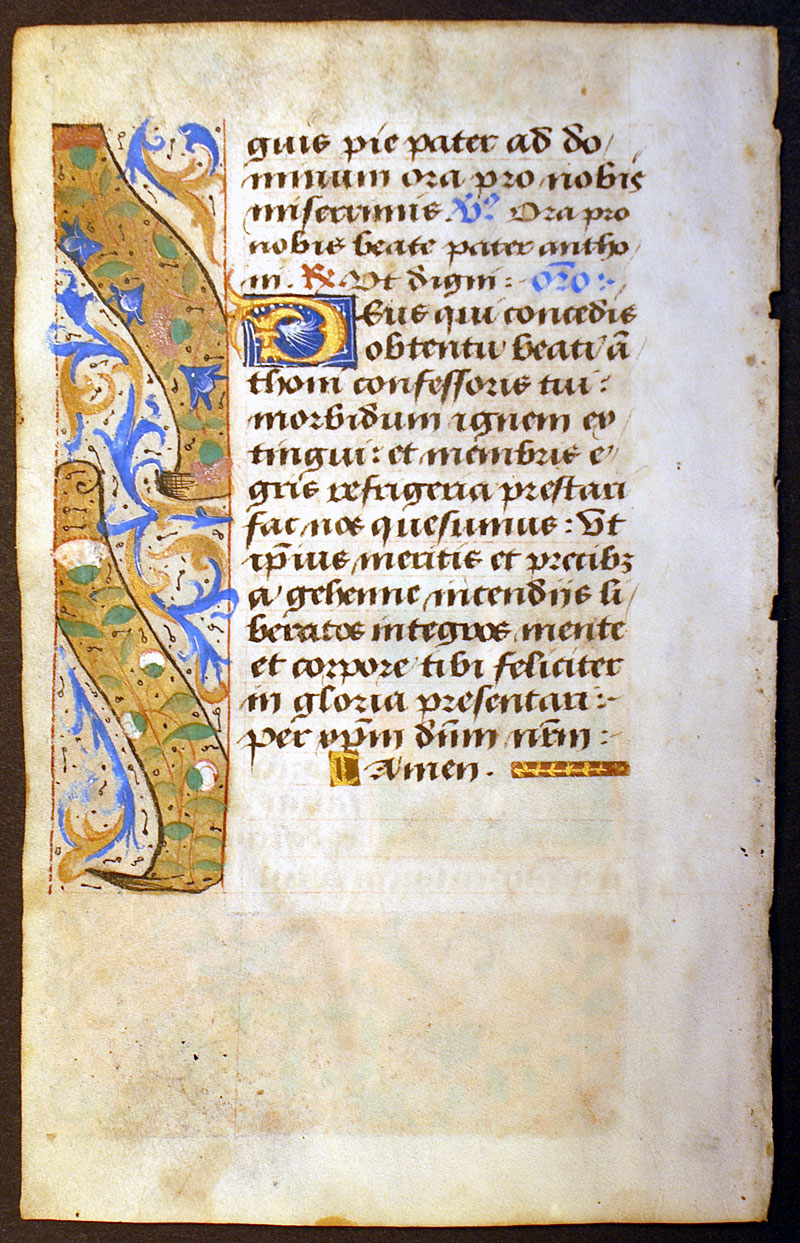 guis pie pater ad do/
minum ora pro nobis
miserrimis V̊. Ora pro
nobis beate pater antho
ni. ℟ Ut digni: or̃o:-
Deus qui concedis
obtentu beati ã
thoni confessoris tui:
morbidum ignem ex
tingui: et membris e/
gris refrigeria prestari
fac nos quesumus: Ut
ip̃ius meritis et precibꝫ
a gehenne incendijs li/
beratos integros mente
et corpore tibi feliciter
in gloria presentari:-
per xp̃m dñm nr̃m:
Amen.